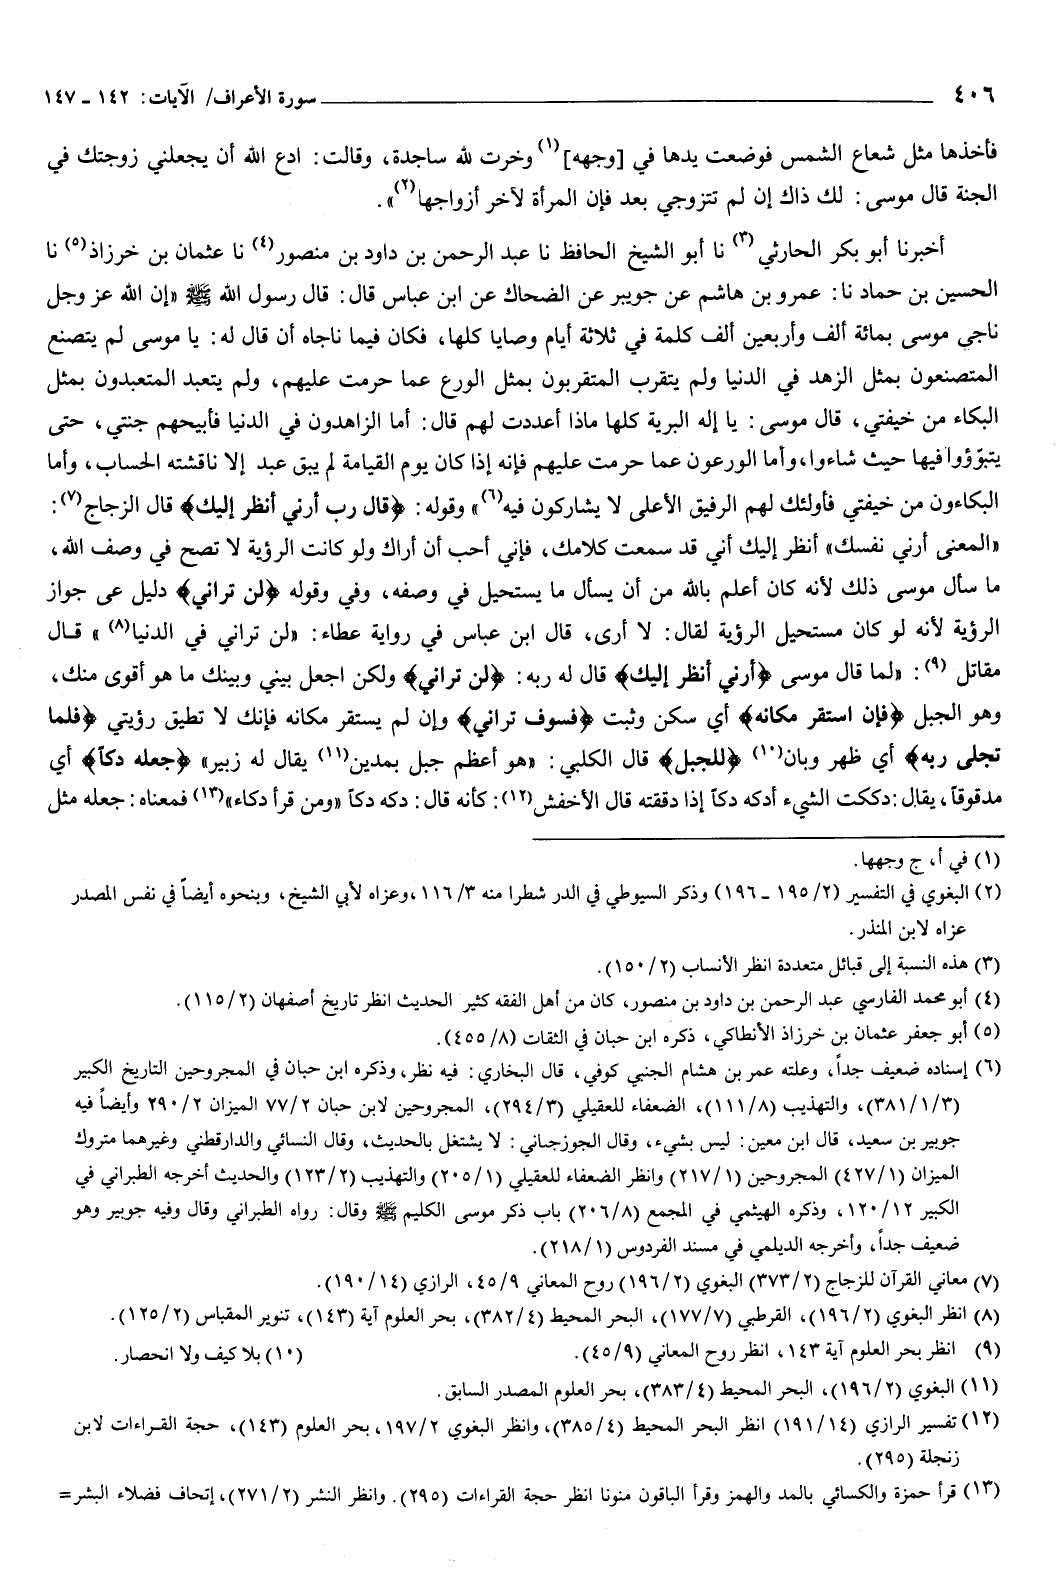 ٤٠٦ ــــــــــــــــــــــــــــــــــــــــ سورة الأعراف/ الآيات: ١٤٢ ـ ١٤٧
فأخذها مثل شعاع الشمس فوضعت يدها في [وجهه](١) وخرت لله ساجدة، وقالت: ادع الله أن يجعلني زوجتك في
الجنة قال موسى: لك ذاك إن لم تتزوجي بعد فإن المرأة لآخر أزواجها(٢)».
أخبرنا أبو بكر الحارثي(٣) نا أبو الشيخ الحافظ نا عبد الرحمن بن داود بن منصور(٤) نا عثمان بن خرزاذ(٥) نا
الحسين بن حماد نا: عمرو بن هاشم عن جويبر عن الضحاك عن ابن عباس قال: قال رسول الله ﷺ «إن الله عز وجل
ناجى موسى بمائة ألف وأربعين ألف كلمة في ثلاثة أيام وصايا كلها، فكان فيما ناجاه أن قال له: يا موسى لم يتصنع
المتصنعون بمثل الزهد في الدنيا ولم يتقرب المتقربون بمثل الورع عما حرمت عليهم، ولم يتعبد المتعبدون بمثل
البكاء من خيفتي، قال موسى: يا إله البرية كلها ماذا أعددت لهم قال: أما الزاهدون في الدنيا فأبيحهم جنتي، حتى
يتبوّؤوا فيها حيث شاءوا، وأما الورعون عما حرمت عليهم فإنه إذا كان يوم القيامة لم يبق عبد إلا ناقشته الحساب، وأما
البكاءون من خيفتي فأولئك لهم الرفيق الأعلى لا يشاركون فيه(٦)» وقوله: ﴿قال رب أرني أنظر إليك﴾ قال الزجاج(٧):
«المعنى أرني نفسك» أنظر إليك أني قد سمعت كلامك، فإني أحب أن أراك ولو كانت الرؤية لا تصح في وصف الله،
ما سأل موسى ذلك لأنه كان أعلم بالله من أن يسأل ما يستحيل في وصفه، وفي وقوله ﴿لن تراني﴾ دليل عى جواز
الرؤية لأنه لو كان مستحيل الرؤية لقال: لا أرى، قال ابن عباس في رواية عطاء: «لن تراني في الدنيا(٨)» قال
مقاتل(٩): «لما قال موسى ﴿أرني أنظر إليك﴾ قال له ربه: ﴿لن تراني﴾ ولكن اجعل بيني وبينك ما هو أقوى منك،
وهو الجبل ﴿فإن استقر مكانه﴾ أي سكن وثبت ﴿فسوف تراني﴾ وإن لم يستقر مكانه فإنك لا تطيق رؤيتي ﴿فلما
تجلى ربه﴾ أي ظهر وبان(١٠) ﴿للجبل﴾ قال الكلبي: «هو أعظم جبل بمدين(١١) يقال له زبير» ﴿جعله دكاً﴾ أي
مدقوقاً، يقال: دككت الشيء أدكه دكاً إذا دققته قال الأخفش(١٢): كأنه قال: دكه دكاً «ومن قرأ دكاء»(١٣) فمعناه: جعله مثل
(١) في أ، ج وجهها.
(٢) البغوي في التفسير (١٩٥/٢ ـ ١٩٦) وذكر السيوطي في الدر شطرا منه ١١٦/٣، وعزاه لأبي الشيخ، وبنحوه أيضاً في نفس المصدر
عزاه لابن المنذر.
(٣) هذه النسبة إلى قبائل متعددة انظر الأنساب (١٥٠/٢).
(٤) أبو محمد الفارسي عبد الرحمن بن داود بن منصور، كان من أهل الفقه كثير الحديث انظر تاريخ أصفهان (١١٥/٢).
(٥) أبو جعفر عثمان بن خرزاذ الأنطاكي، ذكره ابن حبان في الثقات (٤٥٥/٨).
(٦) إسناده ضعيف جداً، وعلته عمر بن هشام الجنبي كوفي، قال البخاري: فيه نظر، وذكره ابن حبان في المجروحين التاريخ الكبير
(٣٨١/١/٣)، والتهذيب (١١١/٨)، الضعفاء للعقيلي (٢٩٤/٣)، المجروحين لابن حبان ٧٧/٢ الميزان ٢٩٠/٢ وأيضاً فيه
جويبر بن سعيد، قال ابن معين: ليس بشيء، وقال الجوزجاني: لا يشتغل بالحديث، وقال النسائي والدارقطني وغيرهما متروك
الميزان (٤٢٧/١) المجروحين (٢١٧/١) وانظر الضعفاء للعقيلي (٢٠٥/١) والتهذيب (١٢٣/٢) والحديث أخرجه الطبراني في
الكبير ١٢٠/١٢، وذكره الهيثمي في المجمع (٢٠٦/٨) باب ذكر موسى الكليم ﷺ وقال: رواه الطبراني وقال وفيه جوبير وهو
ضعيف جداً، وأخرجه الديلمي في مسند الفردوس (٢١٨/١).
(٧) معاني القرآن للزجاج (٣٧٣/٢) البغوي (١٩٦/٢) روح المعاني ٤٥/٩، الرازي (١٩٠/١٤).
(٨) انظر البغوي (١٩٦/٢)، القرطبي (١٧٧/٧)، البحر المحيط (٣٨٢/٤)، بحر العلوم آية (١٤٣)، تنوير المقباس (١٢٥/٢).
(٩) انظر بحر العلوم آية ١٤٣، انظر روح المعاني (٤٥/٩). (١٠) بلا كيف ولا انحصار.
(١١) البغوي (١٩٦/٢)، البحر المحيط (٣٨٣/٤)، بحر العلوم المصدر السابق.
(١٢) تفسير الرازي (١٩١/١٤) انظر البحر المحيط (٣٨٥/٤)، وانظر البغوي ١٩٧/٢، بحر العلوم (١٤٣)، حجة القراءات لابن
زنجلة (٢٩٥).
(١٣) قرأ حمزة والكسائي بالمد والهمز وقرأ الباقون منونا انظر حجة القراءات (٢٩٥). وانظر النشر (٢٧١/٢)، إتحاف فضلاء البشر=